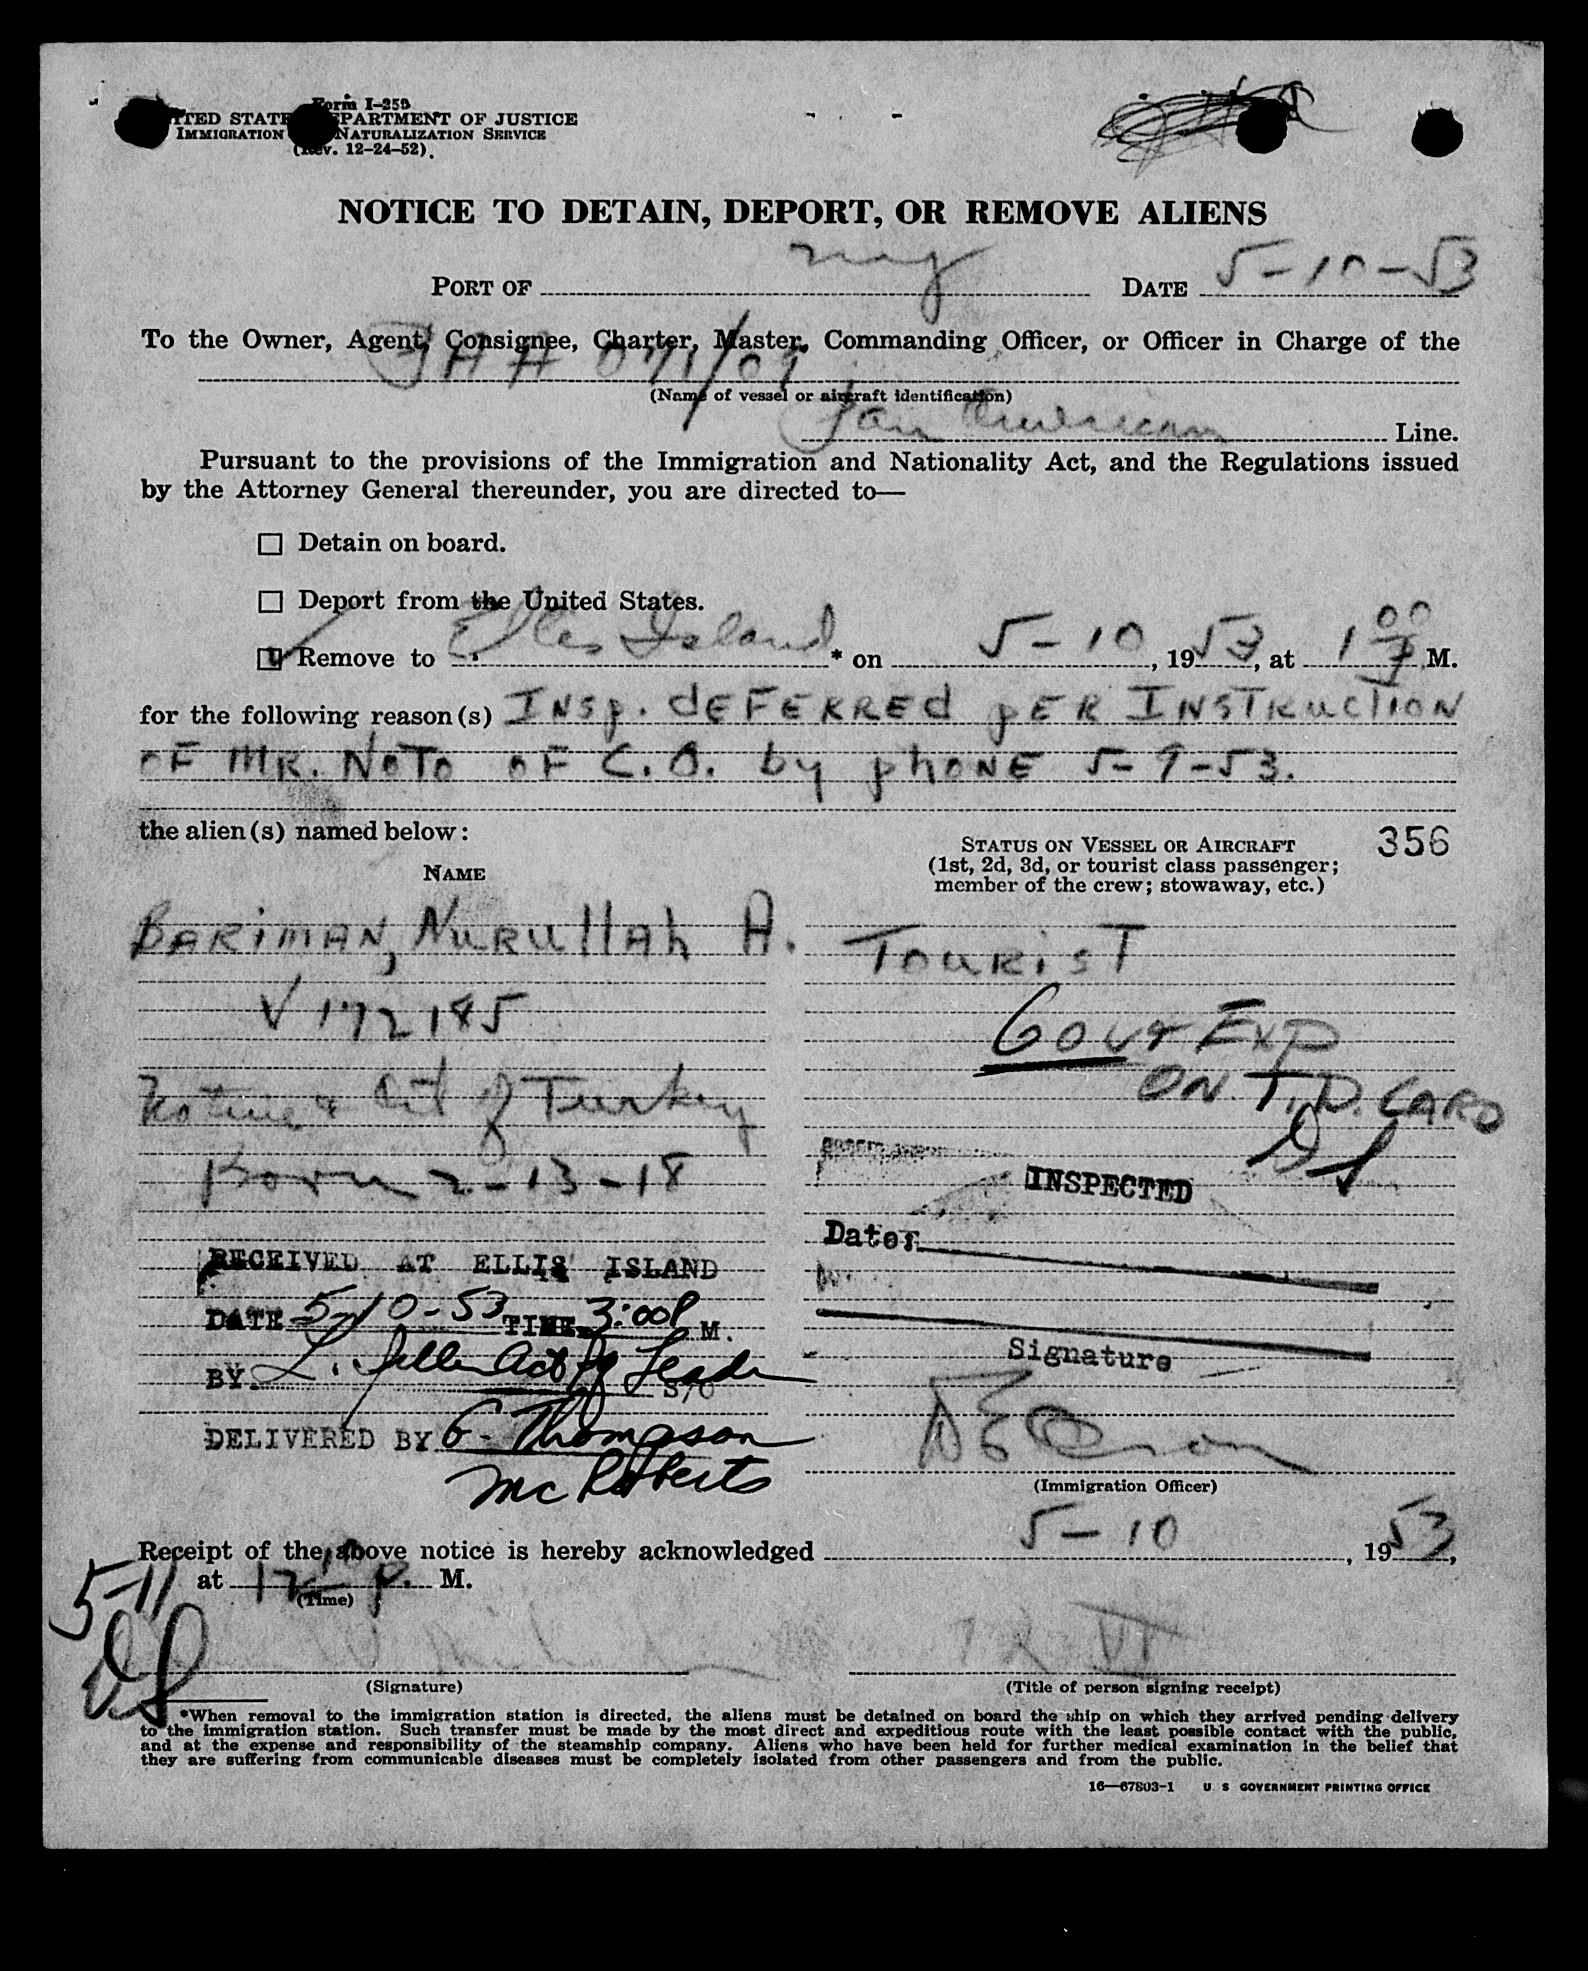 Form I-259
UNITED STATES DEPARTMENT OF JUSTICE
IMMIGRATION NATURALIZATION SERVICE
(Rev. 12-24-52)
NOTICE TO DETAIN, DEPORT, OR REMOVE ALIENS
PORT OF NY DATE 5-10-53
To the Owner, Agent, Consignee, Charter, Master, Commanding Officer, or Officer in Charge of the
PAA # 071/09
(Name of vessel or aircraft identification)
Pan American Line.
Pursuant to the provisions of the Immigration and Nationality Act, and the Regulations issued
by the Attorney General thereunder, you are directed to—
Detain on board.
Deport from the United States.
Remove to Ellis Island * on 5-10, 1953, at 1 00 P M.
for the following reason(s) INSP. dEFERREd PER INSTRuCTION
OF MR. NOTO OF C.O. by phONE 5-9-53.
the alien(s) named below:
356
NAME
STATUS ON VESSEL OR AIRCRAFT
(1st, 2d, 3d, or tourist class passenger;
member of the crew; stowaway, etc.)
BARIMAN, NURullAh A. TOURIST
V 172185
GOVT EXP
ON T.D. CARD
Native & Cit of Turkey
Born 2-13-18
DS
INSPECTED
Date
RECEIVED AT ELLIS ISLAND
DATE 5-10-53 TIME 3:00P M.
BY L. Act S/O
Signature
DELIVERED BY G. Thompson
McRoberts
(Immigration Officer)
Receipt of the above notice is hereby acknowledged 5-10, 1953,
at 12 10 P. M.
(Time)
5-11
DS
(Signature) (Title of person signing receipt)
*When removal to the immigration station is directed, the aliens must be detained on board the ship on which they arrived pending delivery
to the immigration station. Such transfer must be made by the most direct and expeditious route with the least possible contact with the public,
and at the expense and responsibility of the steamship company. Aliens who have been held for further medical examination in the belief that
they are suffering from communicable diseases must be completely isolated from other passengers and from the public.
16—67803-1 U. S. GOVERNMENT PRINTING OFFICE